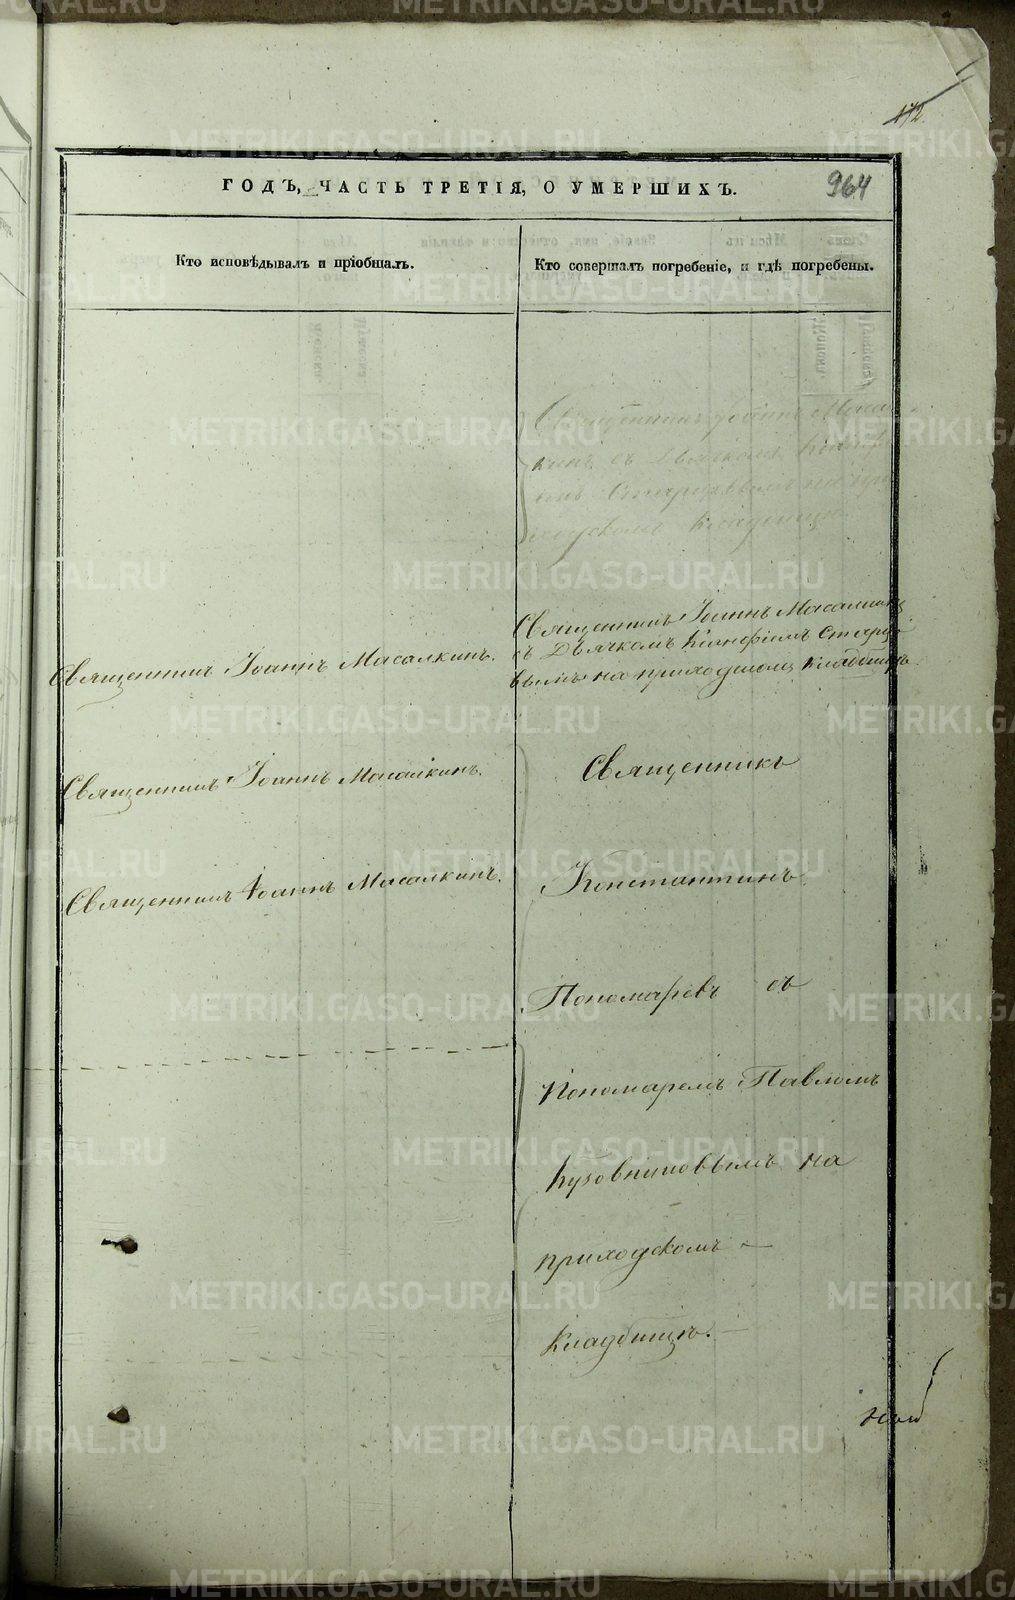 472
ГОДЪ, ЧАСТЬ ТРЕТІЯ, О УМЕРШИХЪ.
964
Кто исповѣдывалъ и пріобщалъ.
Кто совершалъ погребеніе, и гдѣ погребены.
Священникъ Іоаннъ Масал
кинъ съ Дьячкомъ
на при
ходскомъ кладбищѣ
Священникъ Іоаннъ Масалкинъ
съ Дьячкомъ Старце
вымъ на приходскомъ кладбищѣ.
Священникъ Іоаннъ Масалкинъ.
Священникъ Іоаннъ Масалкинъ.
Священникъ Іоаннъ Масалкинъ.
Священникъ
Константинъ
Пономаревъ съ
Пономаремъ Павломъ
Кузовниковымъ на
приходскомъ
Кладбищѣ.
METRIKI.GASO-URAL.RU